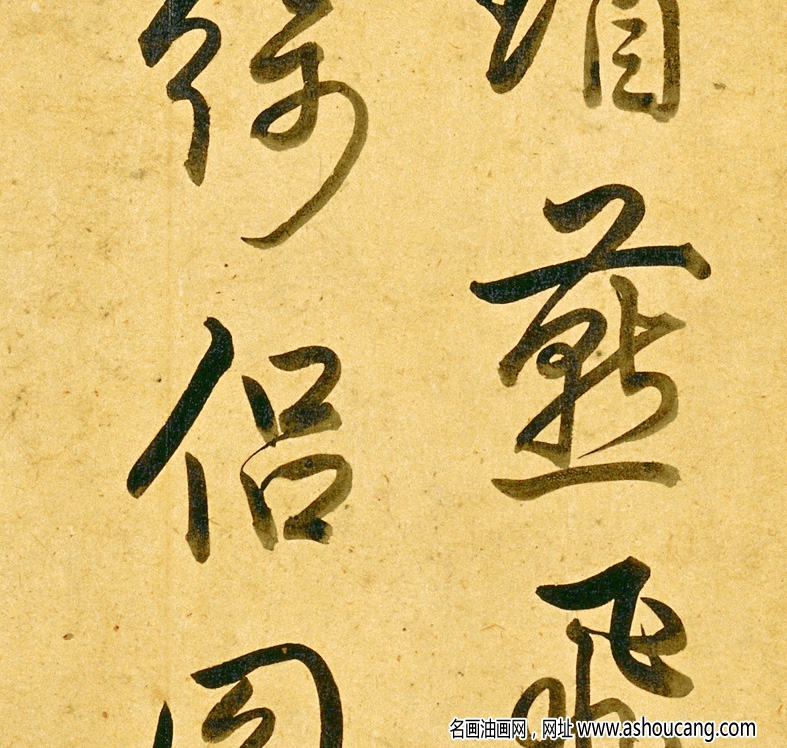 燕飛
侶同
名画油画网，网址 www.ashoucang.com